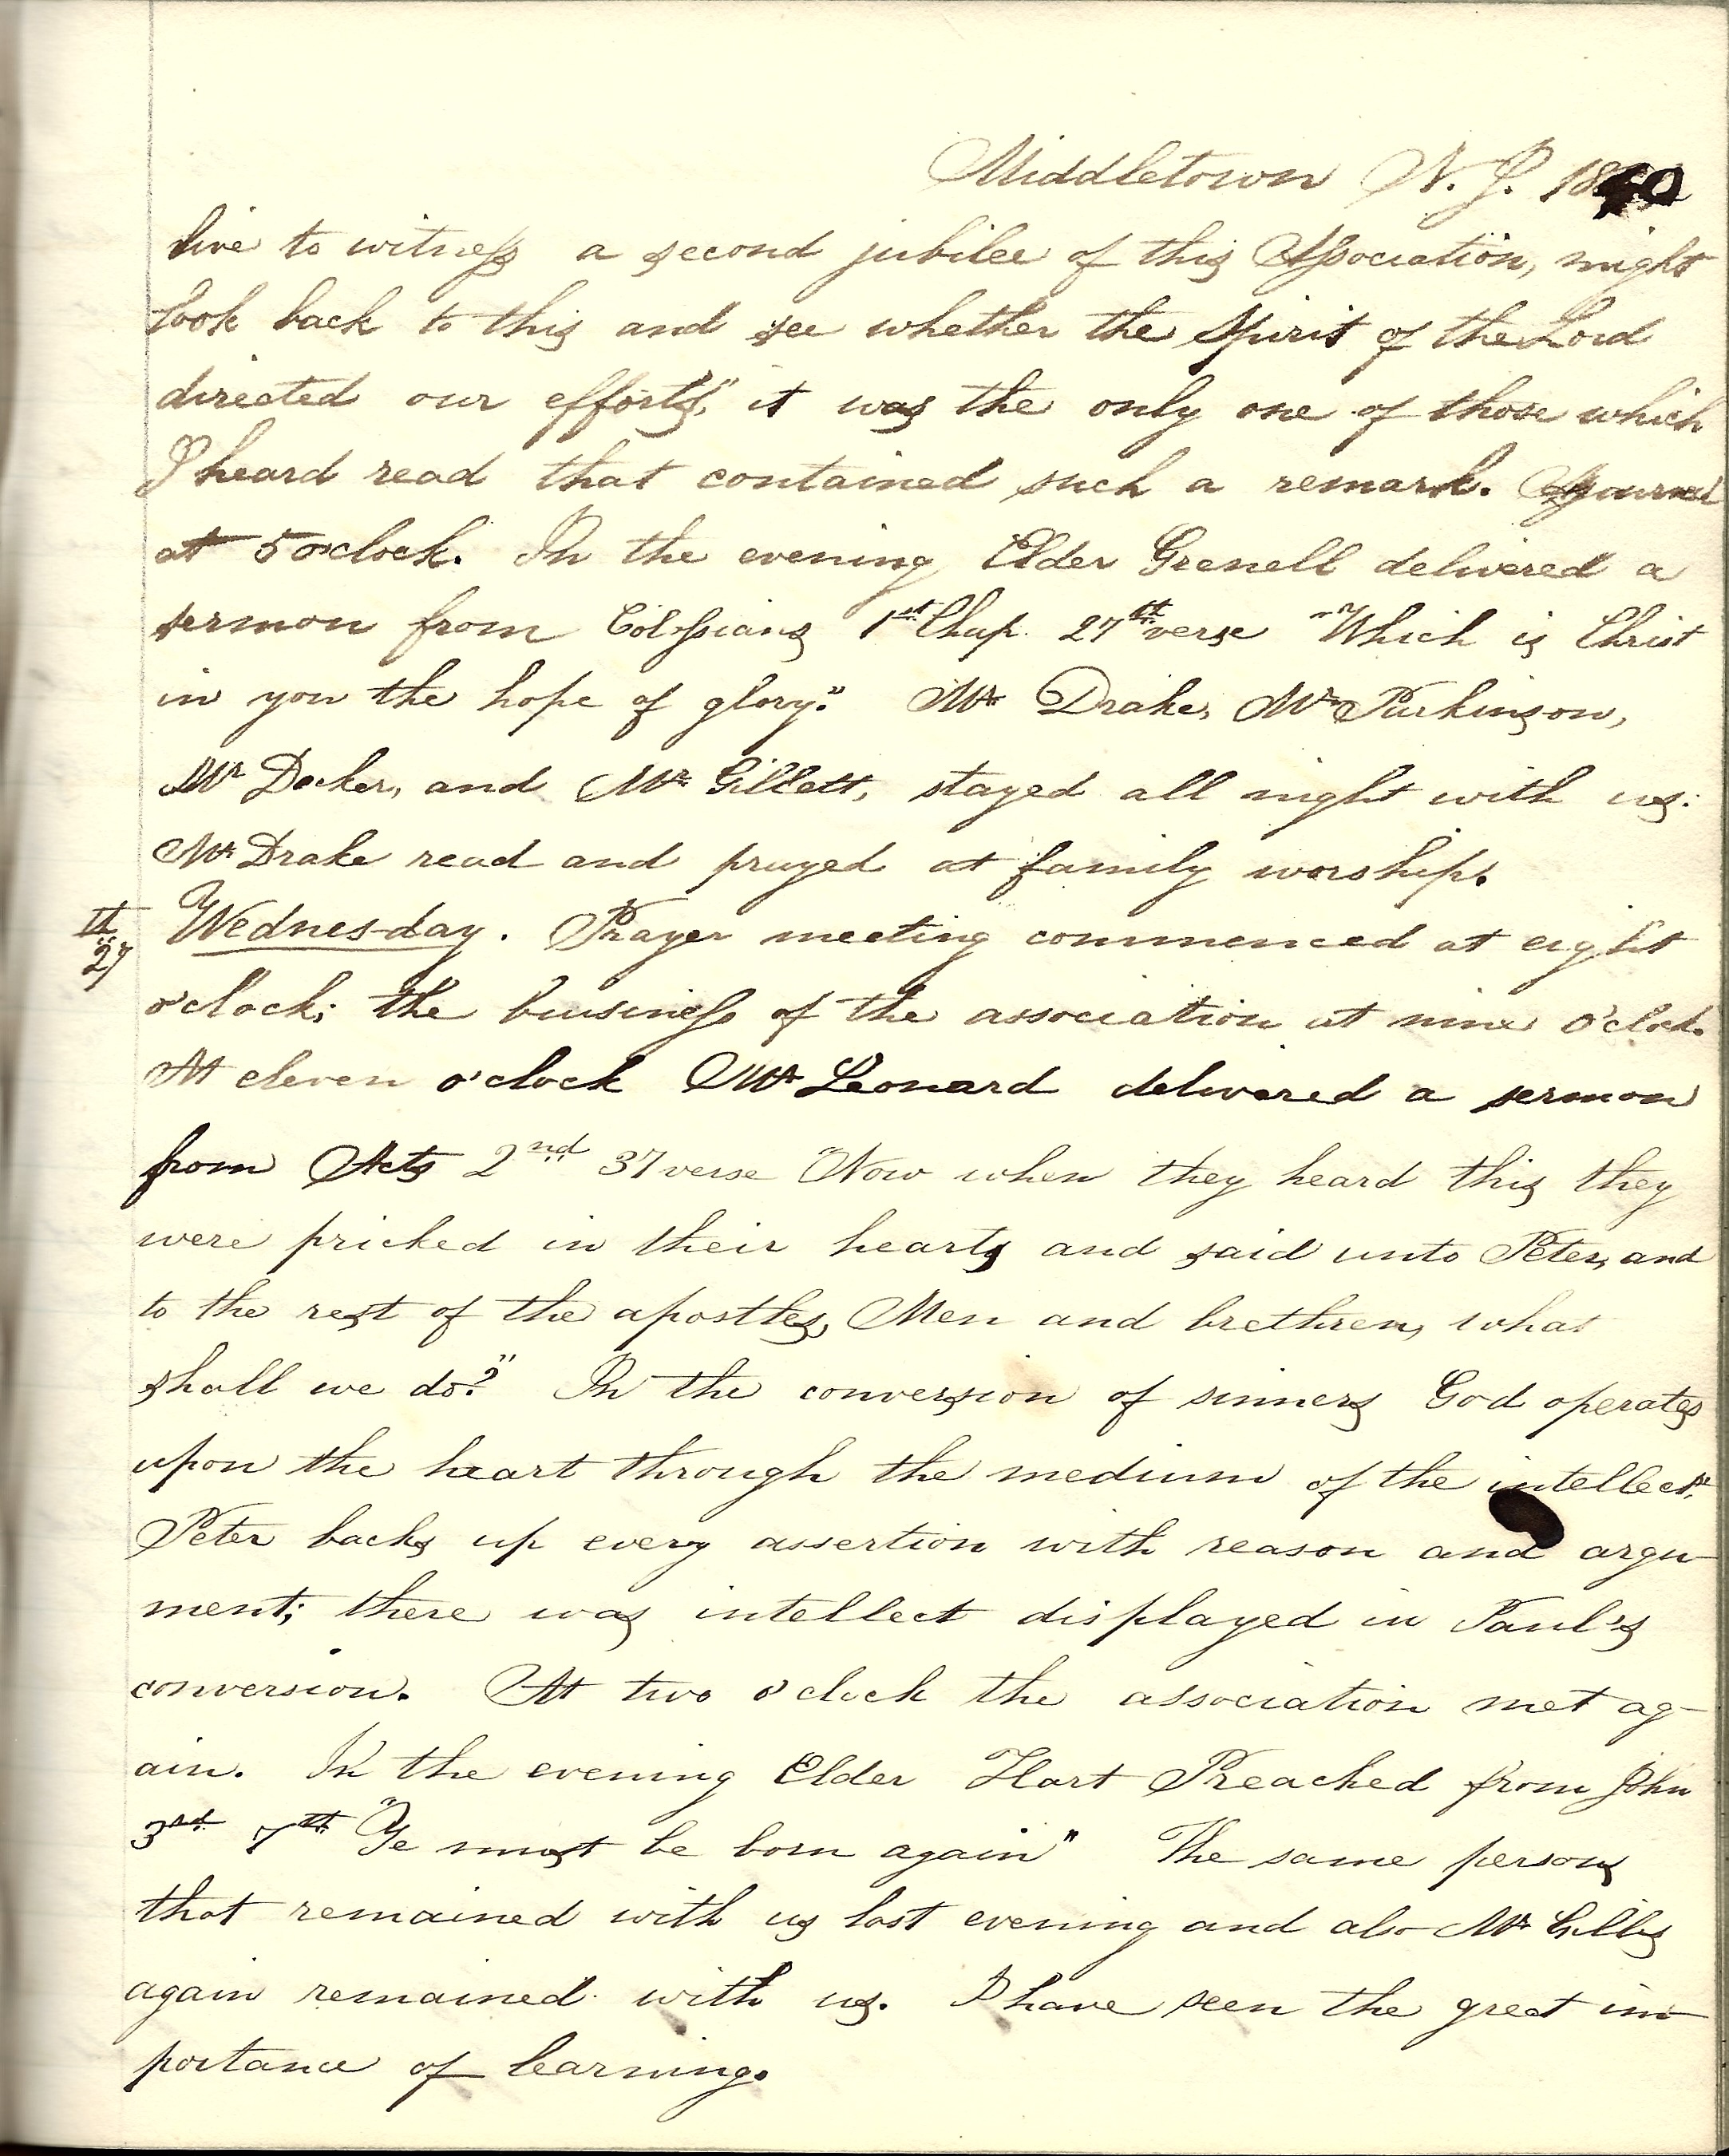 Middletown N. J. 1840
live to witness a second jubilee of this Association, might
look back to this and see whether the Spirit of the Lord
directed our efforts," it was the only one of those which
I heard read that contained such a remark. Ajourned
at 5 o'clock. In the evening Elder Grenell delivered a
sermon from Colossians 1st Chap. 27th verse "Which is Christ
in you the hope of glory." Mr Drake, Mr Parkinson,
Mr Decker, and Mr Gillett, stayed all night with us:
Mr Drake read and prayed at family worship.
27th Wednesday. Prayer meeting commenced at eight
o'clock; the buisiness of the association at nine o'clock.
At eleven o'clock Mr Leonard delivered a sermon
from Acts 2nd 37 verse "Now when they heard this they
were pricked in their hearts and said unto Peter, and
to the rest of the apostles, Men and brethren, what
shall we do?" In the conversion of sinners God operates
upon the heart through the medium of the intellect.
Peter backs up every assertion with reason and argu-
ment; there was intellect displayed in Paul's
conversion. At two o'clock the association met ag-
ain. In the evening Elder Hart Preached from John
3rd 7th "Ye must be born again" The same persons
that remained with us last evening and also Mr Gillis
again remained with us. I have seen the great im-
portance of learning.